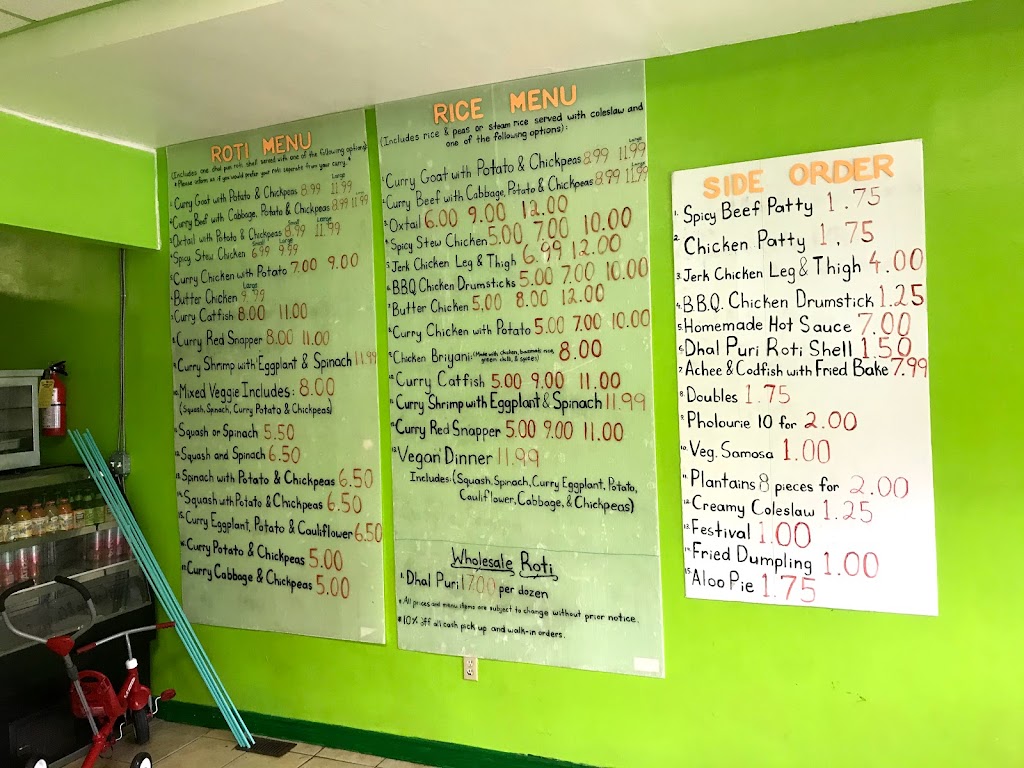 ROTI MENU
(Includes one dhal puri roti shell served with one of the following options)
* Please inform us if you would prefer your roti separate from your curry. *
Large
1. Curry Goat with Potato & Chickpeas 8.99 11.99
Large
2. Curry Beef with Cabbage, Potato & Chickpeas 8.99 11.99
Small Large
3. Oxtail with Potato & Chickpeas 8.99 11.99
Small Large
4. Spicy Stew Chicken 6.99 9.99
5. Curry Chicken with Potato 7.00 9.00
Large
6. Butter Chicken 9.99
7. Curry Catfish 8.00 11.00
8. Curry Red Snapper 8.00 11.00
9. Curry Shrimp with Eggplant & Spinach 11.99
10. Mixed Veggie Includes: 8.00
(Squash, Spinach, Curry Potato & Chickpeas)
11. Squash or Spinach 5.50
12. Squash and Spinach 6.50
13. Spinach with Potato & Chickpeas 6.50
14. Squash with Potato & Chickpeas 6.50
15. Curry Eggplant, Potato & Cauliflower 6.50
16. Curry Potato & Chickpeas 5.00
17. Curry Cabbage & Chickpeas 5.00
RICE MENU
(Includes rice & peas or steam rice served with coleslaw and
one of the following options):
Large
1. Curry Goat with Potato & Chickpeas 8.99 11.99
Large
2. Curry Beef with Cabbage, Potato & Chickpeas 8.99 11.99
3. Oxtail 6.00 9.00 12.00
4. Spicy Stew Chicken 5.00 7.00 10.00
5. Jerk Chicken Leg & Thigh 6.99 12.00
6. B.B.Q. Chicken Drumsticks 5.00 7.00 10.00
7. Butter Chicken 5.00 8.00 12.00
8. Curry Chicken with Potato 5.00 7.00 10.00
9. Chicken Briyani: (Made with chicken, basmati rice,
green chilli, & spices) 8.00
10. Curry Catfish 5.00 9.00 11.00
11. Curry Shrimp with Eggplant & Spinach 11.99
12. Curry Red Snapper 5.00 9.00 11.00
13. Vegan Dinner 11.99
Includes: (Squash, Spinach, Curry Eggplant, Potato,
Cauliflower, Cabbage, & Chickpeas)
Wholesale Roti
1. Dhal Puri 17.00 per dozen
* All prices and menu items are subject to change without prior notice.
* 10% off all cash pick up and walk-in orders.
SIDE ORDER
1. Spicy Beef Patty 1.75
2. Chicken Patty 1.75
3. Jerk Chicken Leg & Thigh 4.00
4. B.B.Q. Chicken Drumstick 1.25
5. Homemade Hot Sauce 7.00
6. Dhal Puri Roti Shell 1.50
7. Achee & Codfish with Fried Bake 7.99
8. Doubles 1.75
9. Pholourie 10 for 2.00
10. Veg. Samosa 1.00
11. Plantains 8 pieces for 2.00
12. Creamy Coleslaw 1.25
13. Festival 1.00
14. Fried Dumpling 1.00
15. Aloo Pie 1.75